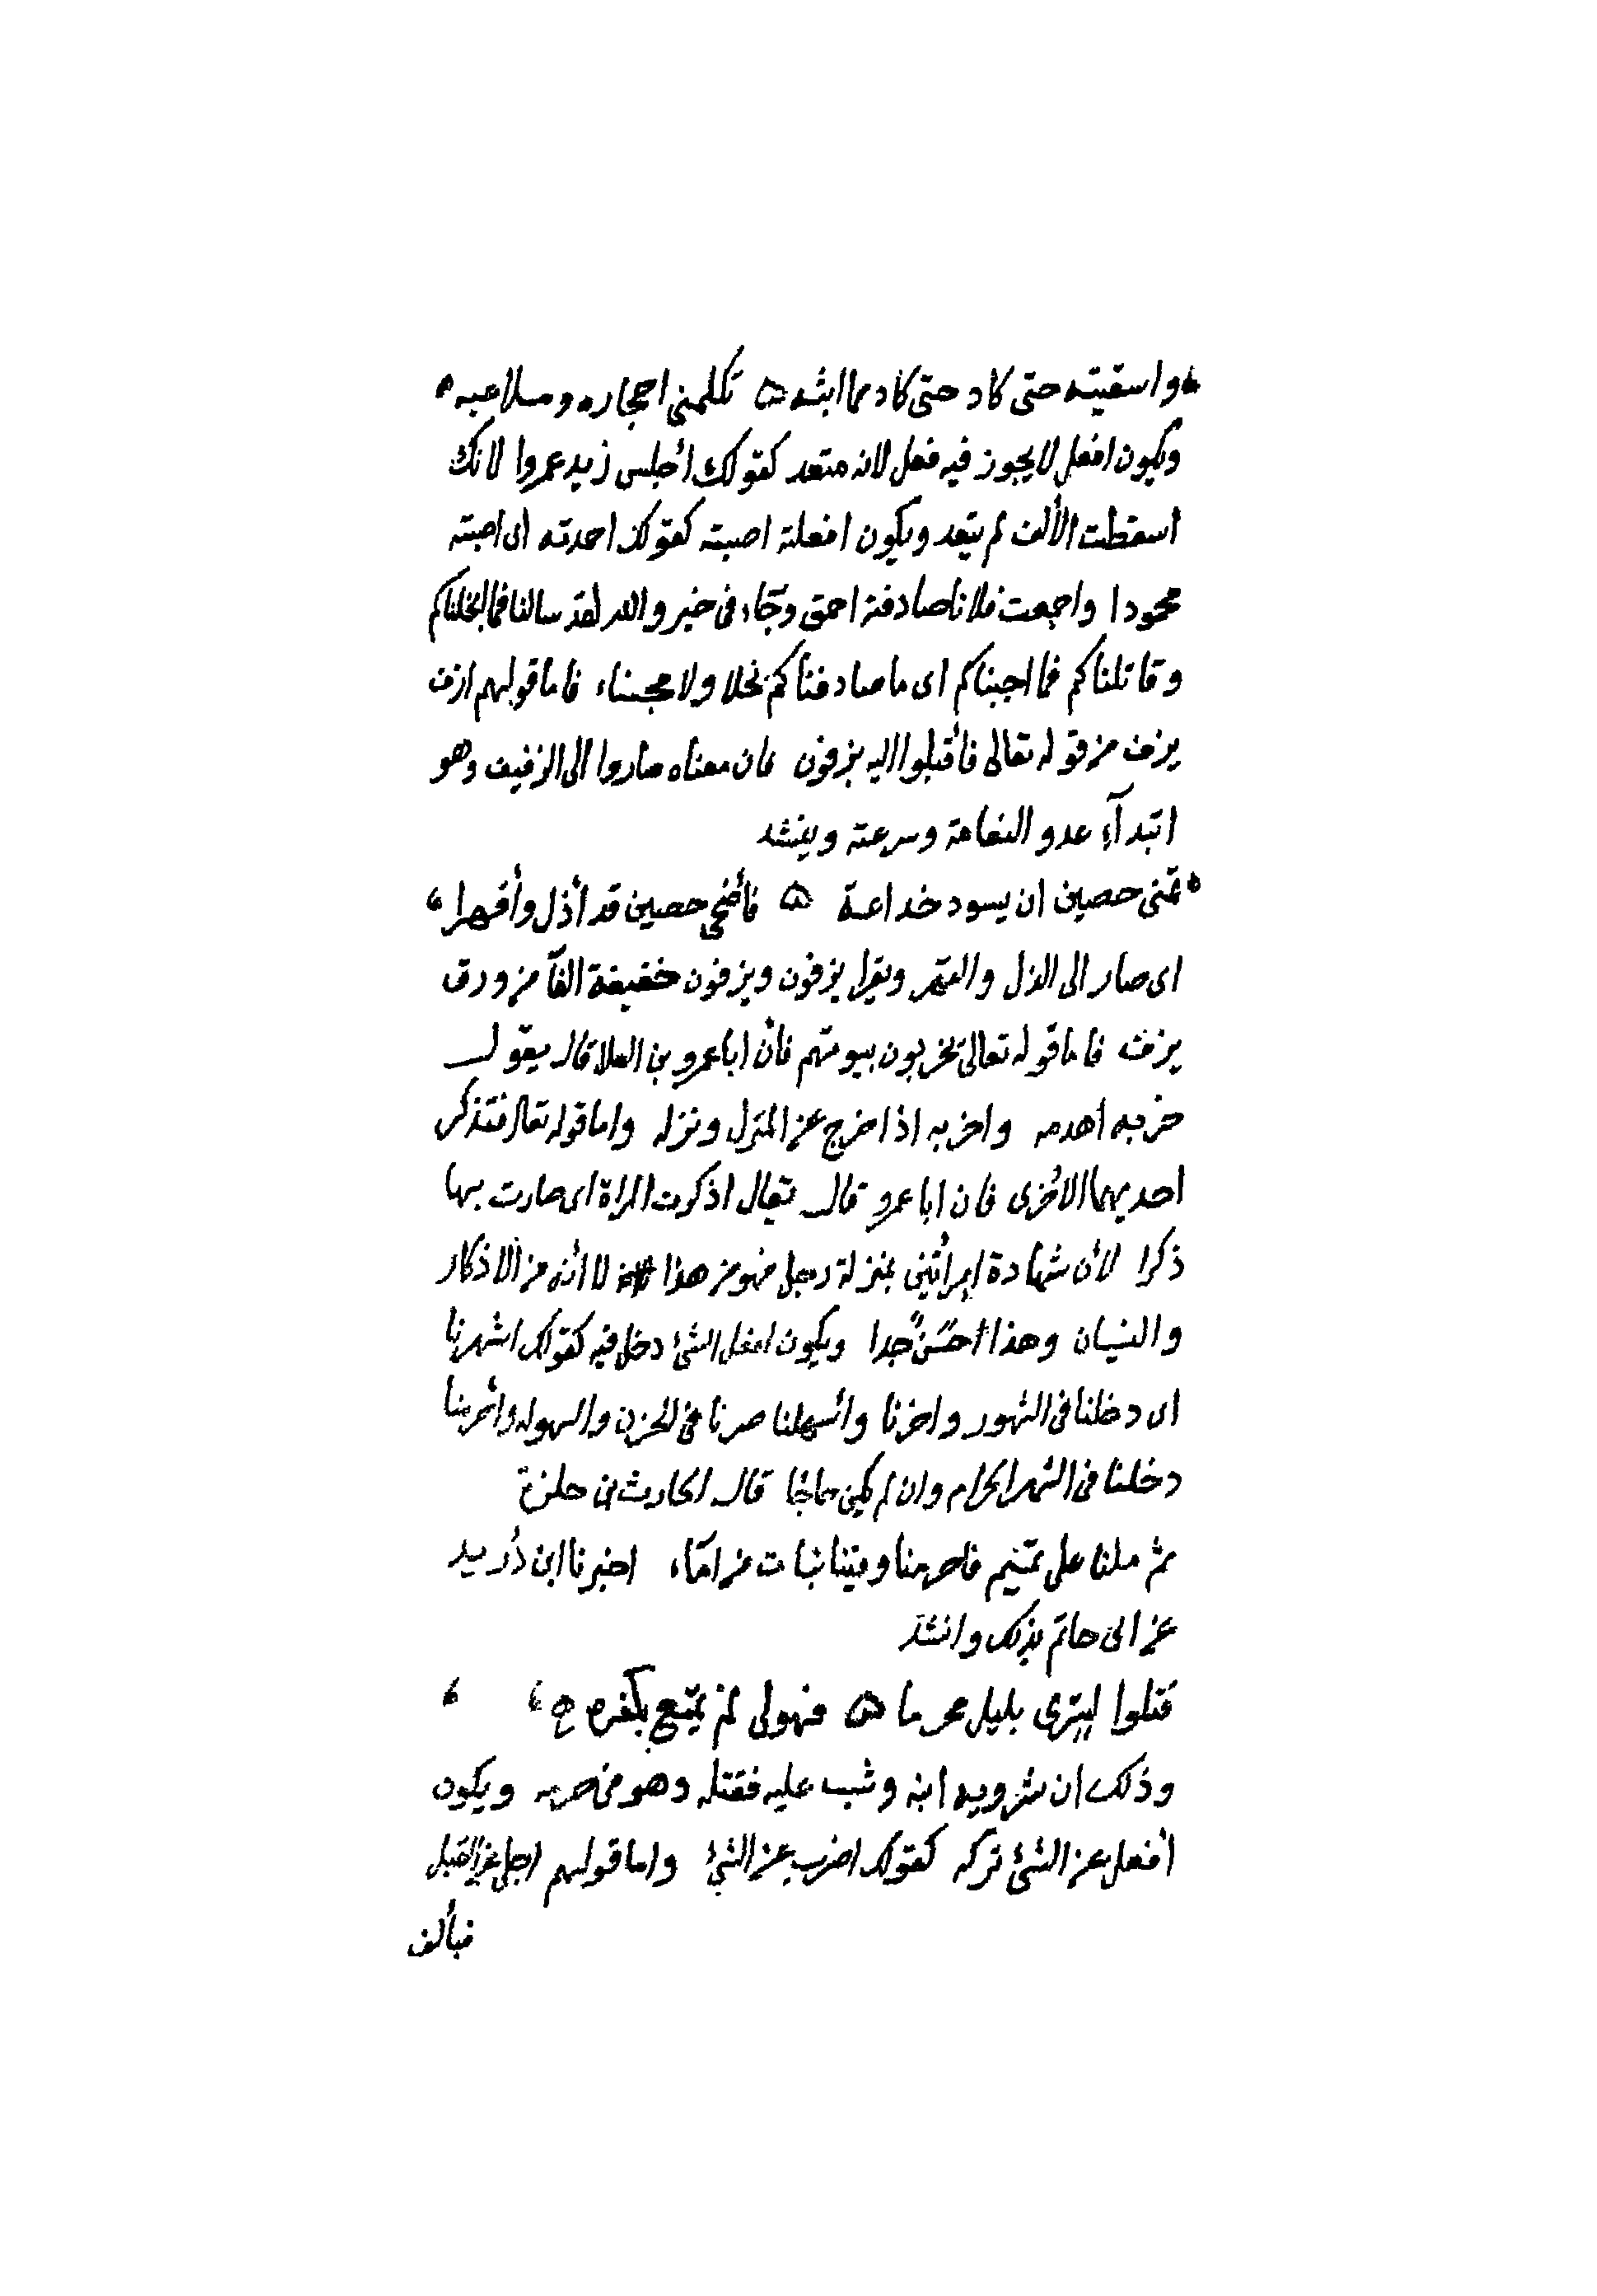 واسقيته حتى كاد حتى كاد مما ابثه ه تكلمنى احجاره وملاعبه
ويكون افعل لا يجوز فيه فعل لانه متعد كقولك أجلس زيد عمروا لانك
اسقطت الألف لم يتعد ويكون افعلته اصبته كقولك احمدته اى اصبته
محمودا واحمقت فلانا صادفته احمق وجاء فى خبر والله لقد سالنا فما ابخلناكم
وقاتلناكم فما اجبناكم اى ما صادفناكم بخلا ولا مجبناء فاما قولهم ازف
يزف من قوله تعالى فأقبلوا اليه يزفون فان معناه صاروا الى الزفيف وهو
ابتدآء عدو النعامة وسرعته وينشد
تمنى حصين ان يسود خداعة ه فأضحى حصين قد أذل وأقهرا
اى صار الى الذل والقهر ويقرا يزفون ويزفون خفيفة الفآ من ورف
يزف فاما قوله تعالى يخربون بيوتهم فأن ابا عمرو بن العلا قال يقول
خربه اهدمه واخربه اذا اخرج عن المنزل ونزله واما قوله تعالى فتذكر
احديهما الاخرى فان ابا عمرو قال يقال اذكرت المراة اى صارت بها
ذكرا لأن شهادة امرأتين بمنزلة رجل فهو من هذا لا انه من الاذكار
والنسيان وهذا احسن جدا ويكون افعل الشئ دخل فيه كقولك اشهرنا
اى دخلنا فى الشهور واحزنا وأسهلنا صرنا فى الحزن والسهوله وأحرمنا
دخلنا فى الشهر الحرام وان لم يكن حاجا قال الحارث بن حلزة
ثم ملنا على تميم فاحرمنا وفينا بنات مر اماء اخبرنا ابن دريد
عن ابى حاتم بذلك وانشد
قتلوا كسرى بليل محرما ه فتولى لم يمتع بكفن
وذلك ان شرويه ابنه وثب عليه فقتله وهو فى حرمه ويكون
أفعل عن الشئ تركه كقولك اضرب عن الشئ واما قولهم اجلى عن القتيل
فبألف